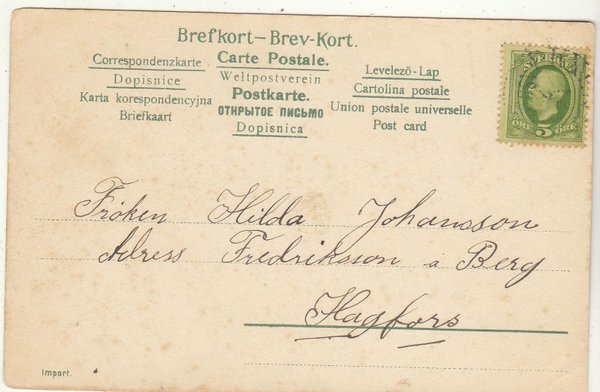 Brefkort—Brev-Kort.
Correspondenzkarte.
Dopisnice
Karta korespondencyjna
Briefkaart
Carte Postale.
Weltpostverein
Postkarte.
ОТКРЫТОЕ ПИСЬМО
Dopisnica
Levelezö-Lap
Cartolina postale
Union postale universelle
Post card
SVERIGE
5
ÖRE ÖRE
Fröken Hilda Johansson
Adress Fredriksson a Berg
Hagfors
Import.